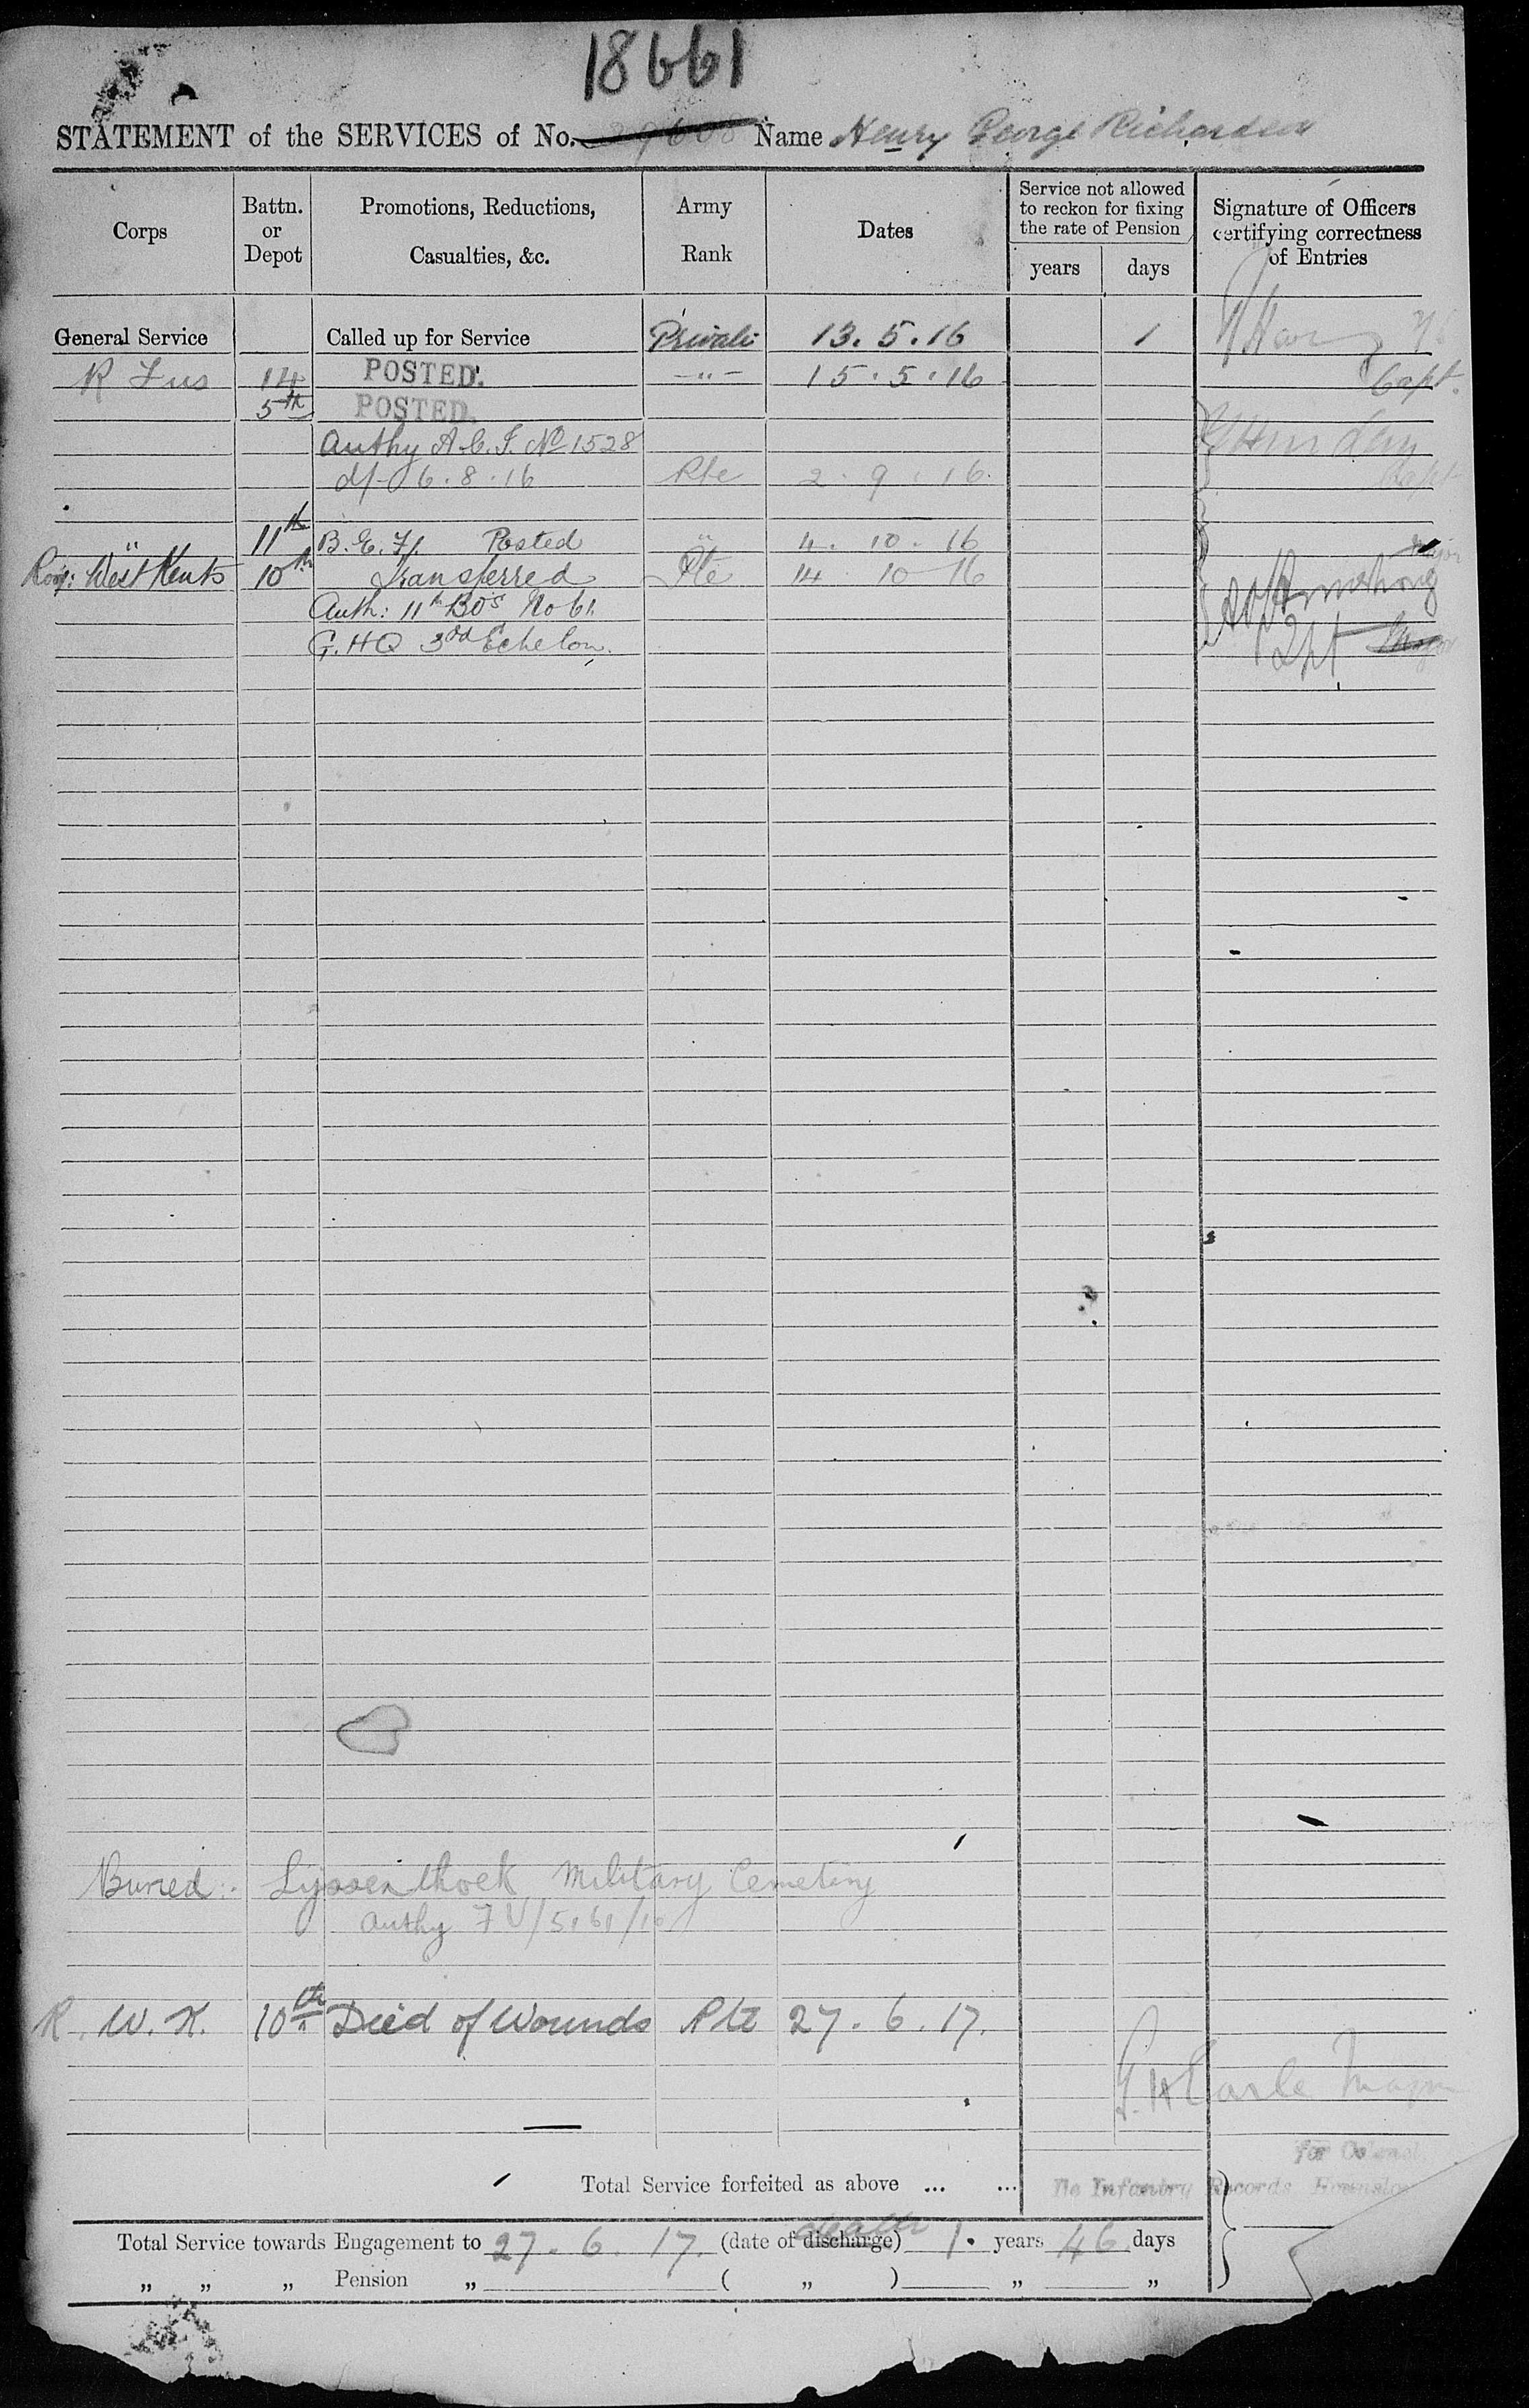 18661
STATEMENT of the SERVICES of No. Name Henry George Richardson
Corps
Battn. or Depot
Promotions, Reductions, Casualties, &c.
Army Rank
Dates
Service not allowed to reckon for fixing the rate of Pension
years days
Signature of Officers certifying correctness of Entries
General Service Called up for Service Private 13.5.16 1
R Fus 14 POSTED. -"- 15.5.16 Capt.
5th POSTED.
Authy A.C.I. No 1528
d/- 6.8.16 Pte 2.9.16. Capt
" 11th B.E.F. Posted " 4.10.16
Roy: West Kents 10th Transferred Pte 14 10 16 Armstrong
Auth: 11th No 61
G.HQ 3rd Echelon. Capt
Buried: Lijssenthoek Military Cemetery
Authy
R.W.K. 10th Died of Wounds Pte 27.6.17.
G.H. Earle Major
for Colonel
Total Service forfeited as above ... ... Infantry Records Hounslow
Total Service towards Engagement to 27.6.17. (date of discharge) death 1. years 46 days
" " " Pension " ( " ) " "